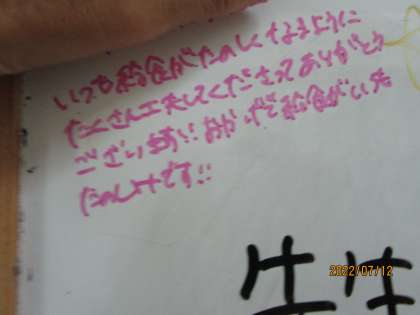 いつも給食がたのしくなるように
たくさん工夫してくださってありがとう
ございます!! おかげで給食がいつも
たのしみです!!
2022/07/12